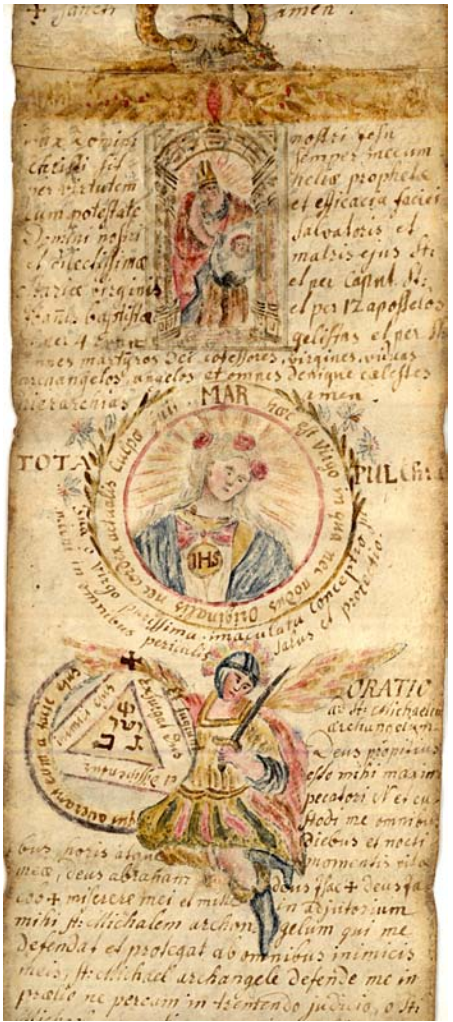 + Sancti amen.
pax Domini nostri Jesu
Christi sit semper meccum
per virtutem heliæ prophetæ
cum potestate et efficacia faciei
Domini nostri salvatoris et
et dilectissimæ matris ejus st:
Mariæ virginis et per caput St:
Joañis baptistæ et per 12 apostolos
et per 4 evangelistas et per St
omnes martyros dei cofessores, virgines, viduas
archangelos, angelos et omnes denique cælestes
hierarchias amen.
MAR
TOTA PULChra
hæc est Virgo in qua nec nodus Originalis nec cordex actualis Culpæ fuit
tua o Virgo purissima immaculata Conceptio
in omnibus periculis salus et protectio
ORATIO
ad St: Michaelem
archangelum
Deus propitius
esto mihi maximo
pecatori N et cu
stodi me omnibus
diebus et nocti
bus, horis atque momentis vitæ
meæ, deus abraham deus isac + deus Ja
cob + miserere mei et mitte in adjutorium
mihi St: Michalem archangelum qui me
defendat et protegat ab omnibus inimicis
meis, St: Michael archangele defende me in
prælio ne peream in tremendo judicio, o St:
IHS